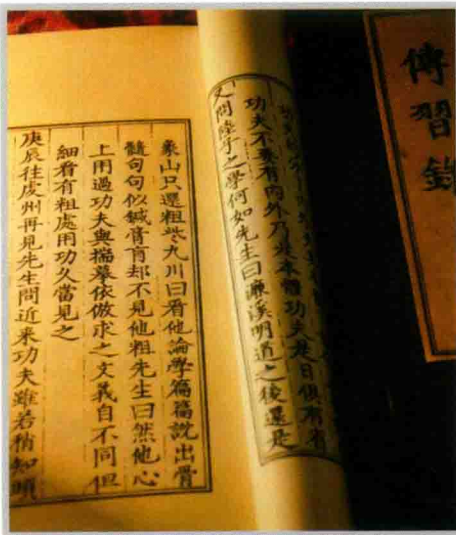 傳習錄
功夫不要有內外乃是本體功夫是日俱有省
又問陸子之學何如先生曰濂溪明道之後還是
象山只還粗些九川曰看他論學篇篇說出骨
髓句句似鍼膏肓却不見他粗先生曰然他心
上用過功夫與揣摹依倣求之文義自不同但
細看有粗處用功久當見之
庚辰往虔州再見先生問近來功夫雖若稍知頭